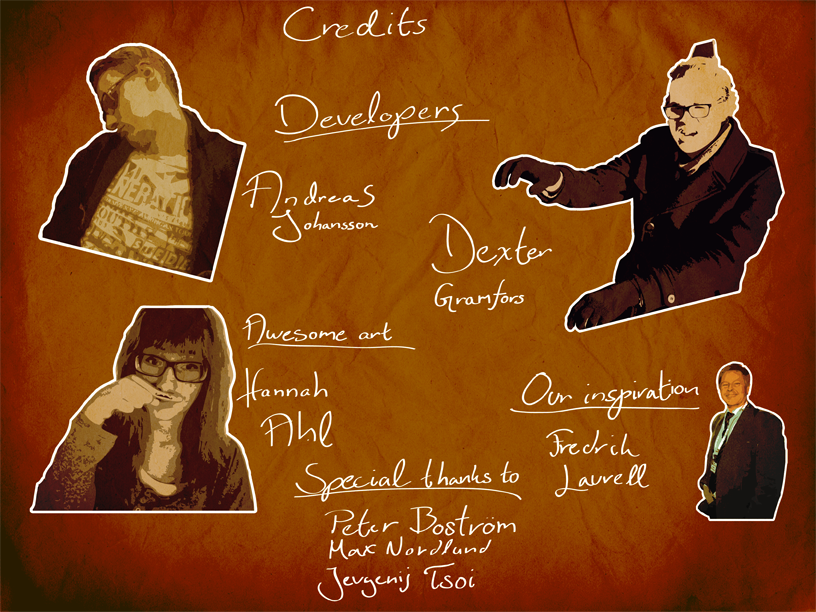 Credits
Developers
Andreas
Johansson
Dexter
Gramfors
Awesome art
Hannah
Ahl
Our inspiration
Fredrik
Laurell
Special thanks to
Peter Boström
Max Nordlund
Jevgenij Tsoi